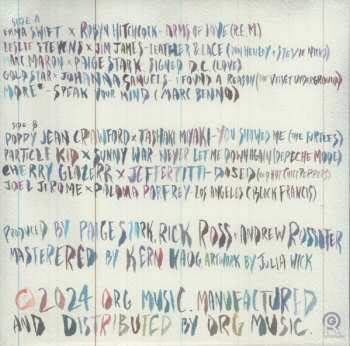 SIDE A
EMMA SWIFT x ROBYN HITCHCOCK - ARMS OF LOVE (R.E.M.)
LESLIE STEVENS x JIM JAMES - LEATHER & LACE (DON HENLEY + STEVIE NICKS)
MARC MARON x PAIGE STARK - SIGNED D.C. (LOVE)
GOLD STAR x JOHANNA SAMUELS - I FOUND A REASON (THE VELVET UNDERGROUND)
MORE* - SPEAK YOUR MIND (MARC BENNO)
SIDE B
POPPY JEAN CRAWFORD x TASHAKI MIYAKI - YOU SHOWED ME (THE TURTLES)
PARTICLE KID x SUNNY WAR - NEVER LET ME DOWN AGAIN (DEPECHE MODE)
CHERRY GLAZERR x JEFFERTITTI - DOSED (RED HOT CHILI PEPPERS)
JOEL JEROME x PALOMA PARFREY - LOS ANGELES (BLACK FRANCIS)
PRODUCED BY PAIGE STARK, RICK ROSS + ANDREW ROSSITER
MASTERED BY KERN HAUG ARTWORK BY JULIA WICK
©2024 ORG MUSIC. MANUFACTURED
AND DISTRIBUTED BY ORG MUSIC.